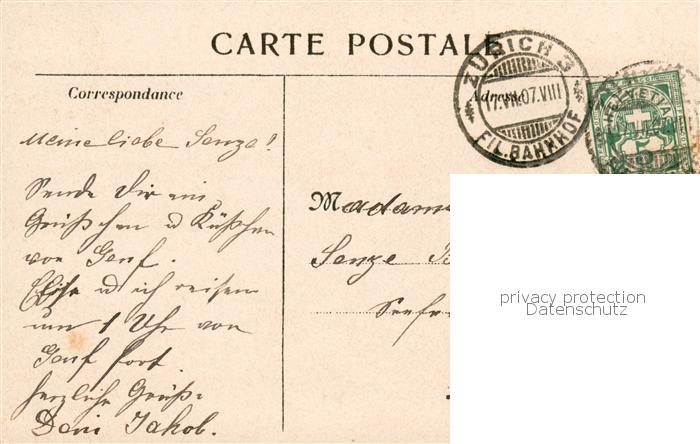 CARTE POSTALE
Correspondance
Adresse
ZÜRICH 3
17.VII.07.VIII
FIL. BAHNHOF
HELVETIA
Meine liebe Senze!
Sende Dir ein
Grüßchen u Küßchen
von Genf.
u ich reisen
um 1 Uhr von
Genf fort.
herzliche Grüße
Dein Jakob.
Madame
Senze
privacy protection
Datenschutz